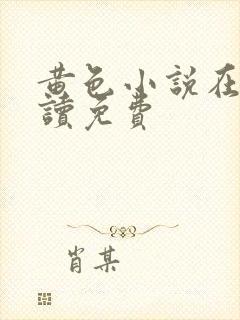 黄色小說在
讀免費
肖某